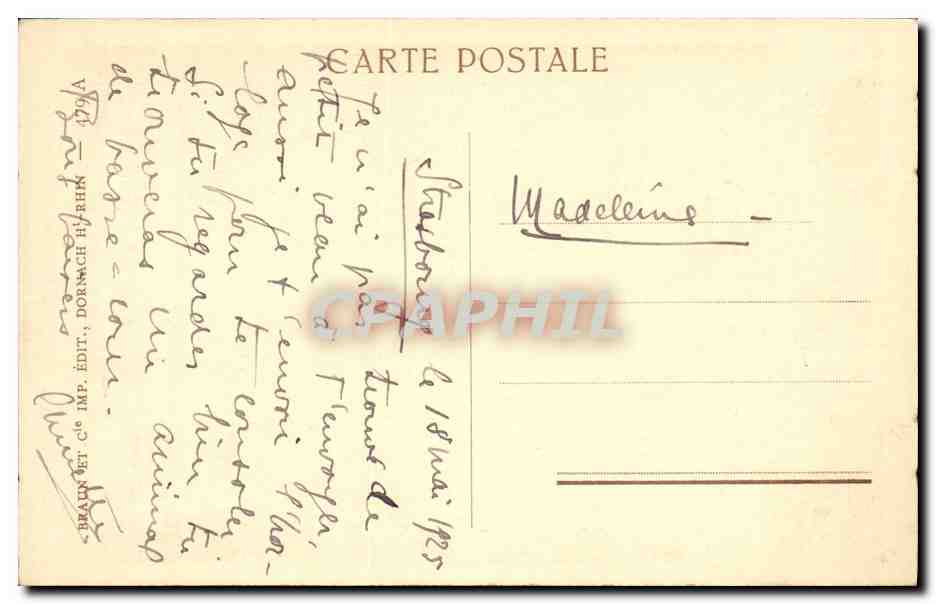 CARTE POSTALE
Strasbourg le 18 mai 1925
Je n'ai pas trouvé de
petit veau à t'envoyer
aussi je t'envoie l'hor-
loge pour te consoler
Si tu regardes bien tu
trouveras un animal
de basse-cour.
Madeleine
BRAUN ET Cie IMP. ÉDIT., DORNACH H!-RHIN — 479/A
CPAPHIL